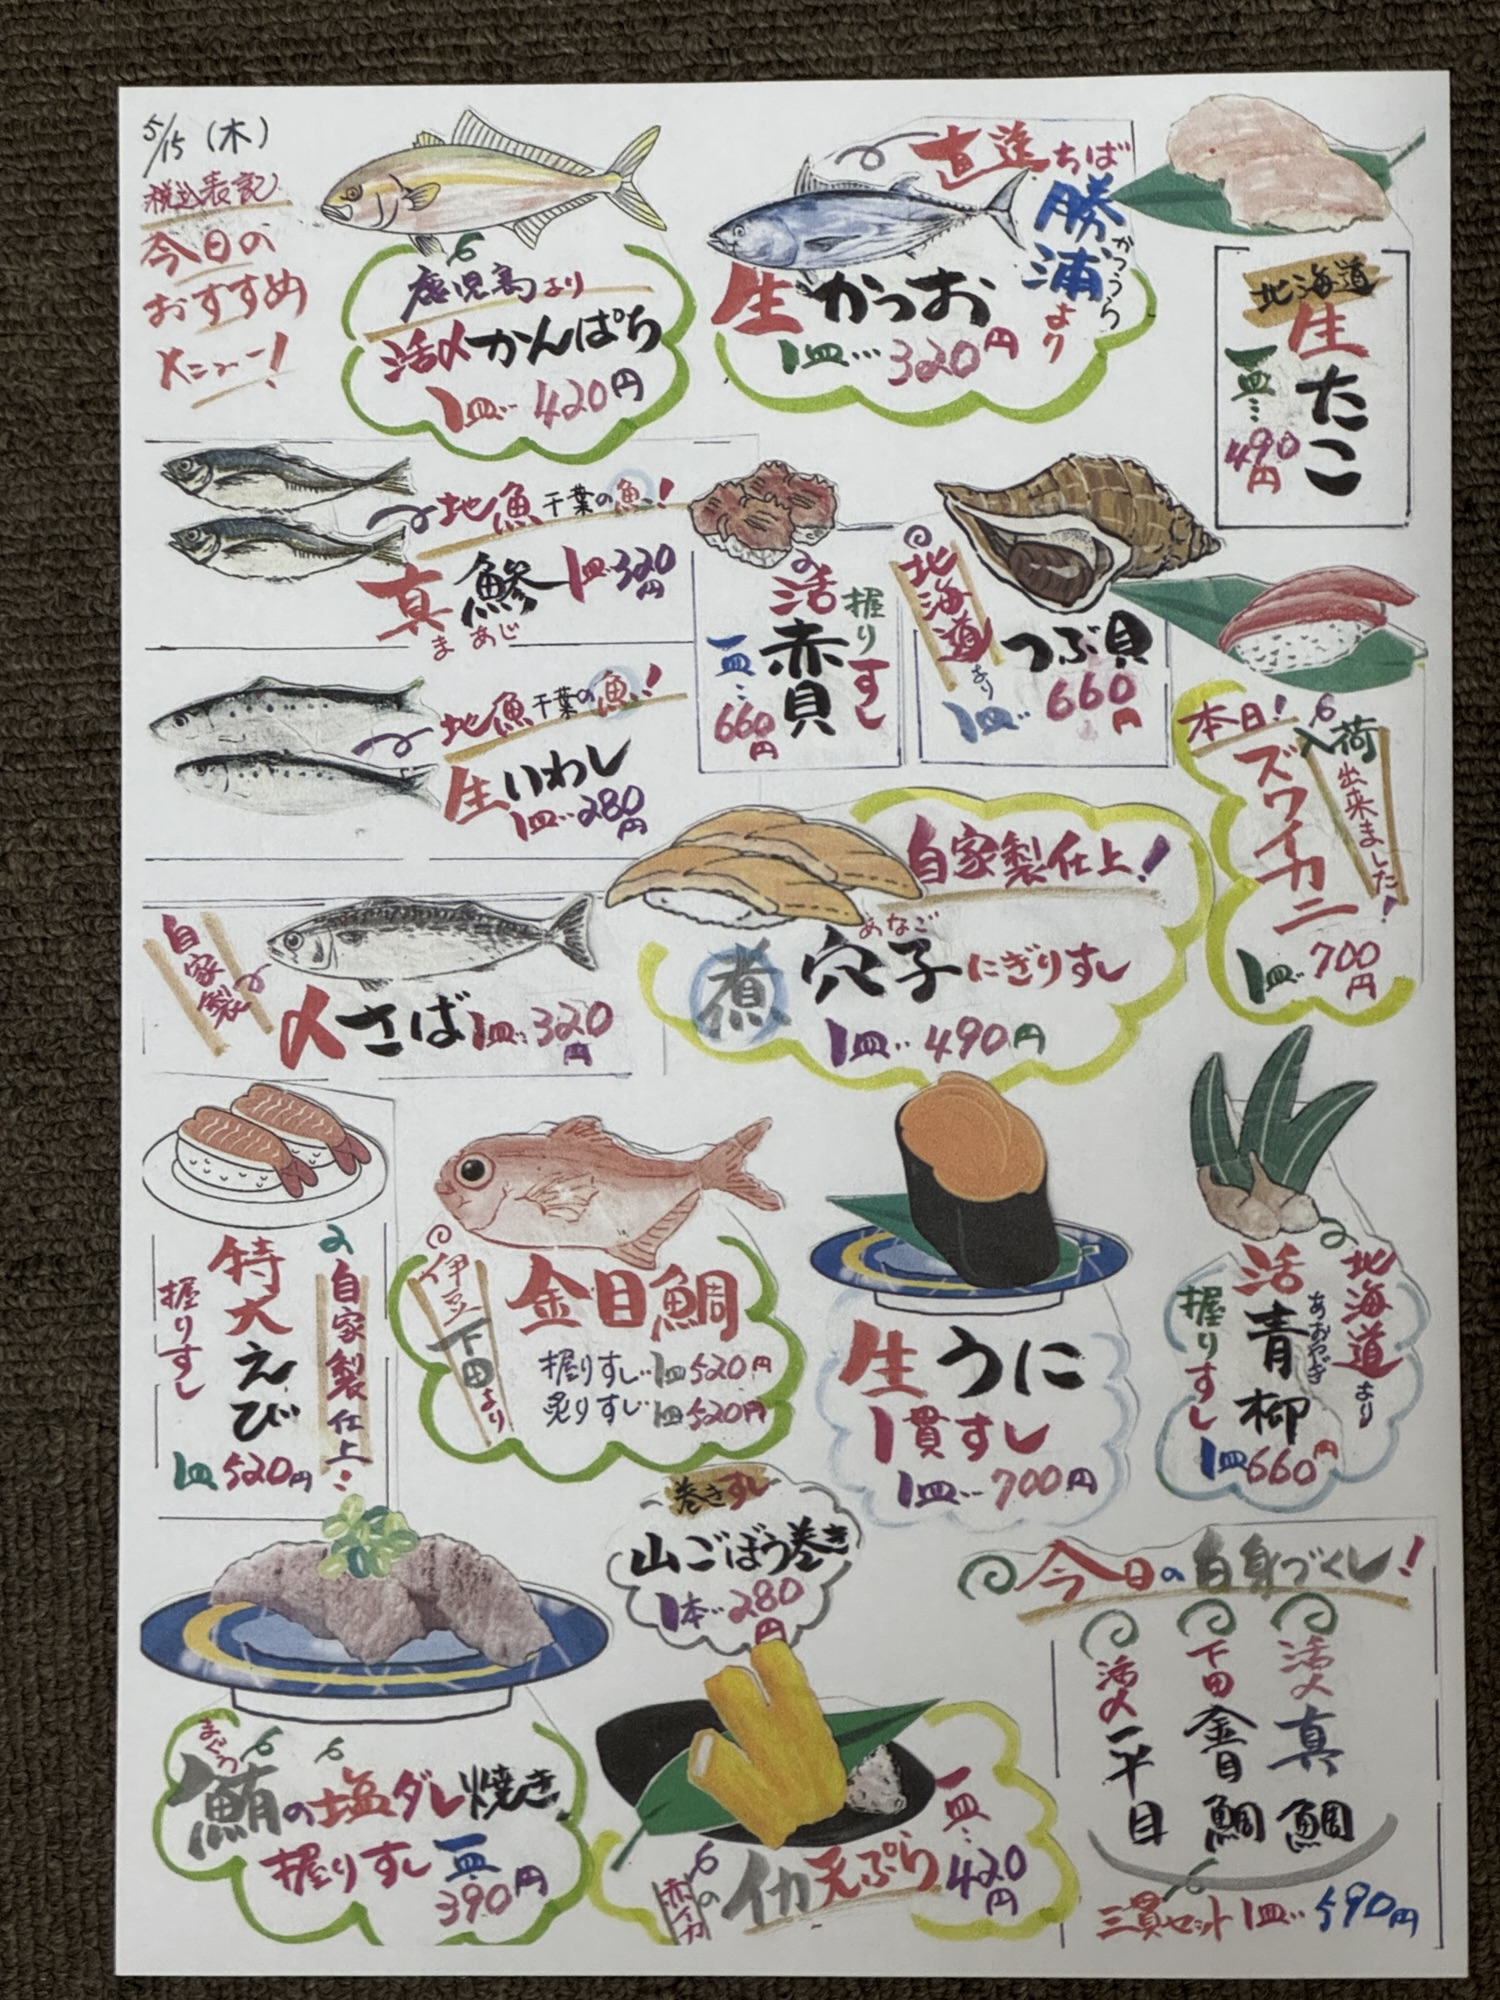 5/15(木)
税込表記
今日の
おすすめ
メニュー!
鹿児島より
活〆かんぱち
1皿…420円
直送ちば
勝浦より
かつうら
生かつお
1皿…320円
北海道
生たこ
一皿…490円
地魚千葉の魚!
真鯵1皿320円
まあじ
活赤貝
握りすし
一皿…660円
北海道より
つぶ貝
1皿…660円
地魚千葉の魚!
生いわし
1皿…280円
本日!入荷出来ました!
ズワイカニ
1皿…700円
自家製
〆さば1皿…320円
自家製仕上!
あなご
煮穴子にぎりすし
1皿…490円
自家製仕上…
特大えび
握りすし
1皿520円
伊豆下田より
金目鯛
握りすし…1皿520円
炙りすし…1皿520円
生うに
1貫すし
1皿…700円
北海道より
活青柳
あおやぎ
握りすし
1皿660円
巻きすし
山ごぼう巻き
1本…280円
まぐろ
鮪の塩ダレ焼き
握りすし一皿390円
赤イカの
イカ天ぷら
一皿…420円
今日の白身づくし!
活〆真鯛
下田金目鯛
活〆平目
三貫セット1皿…590円